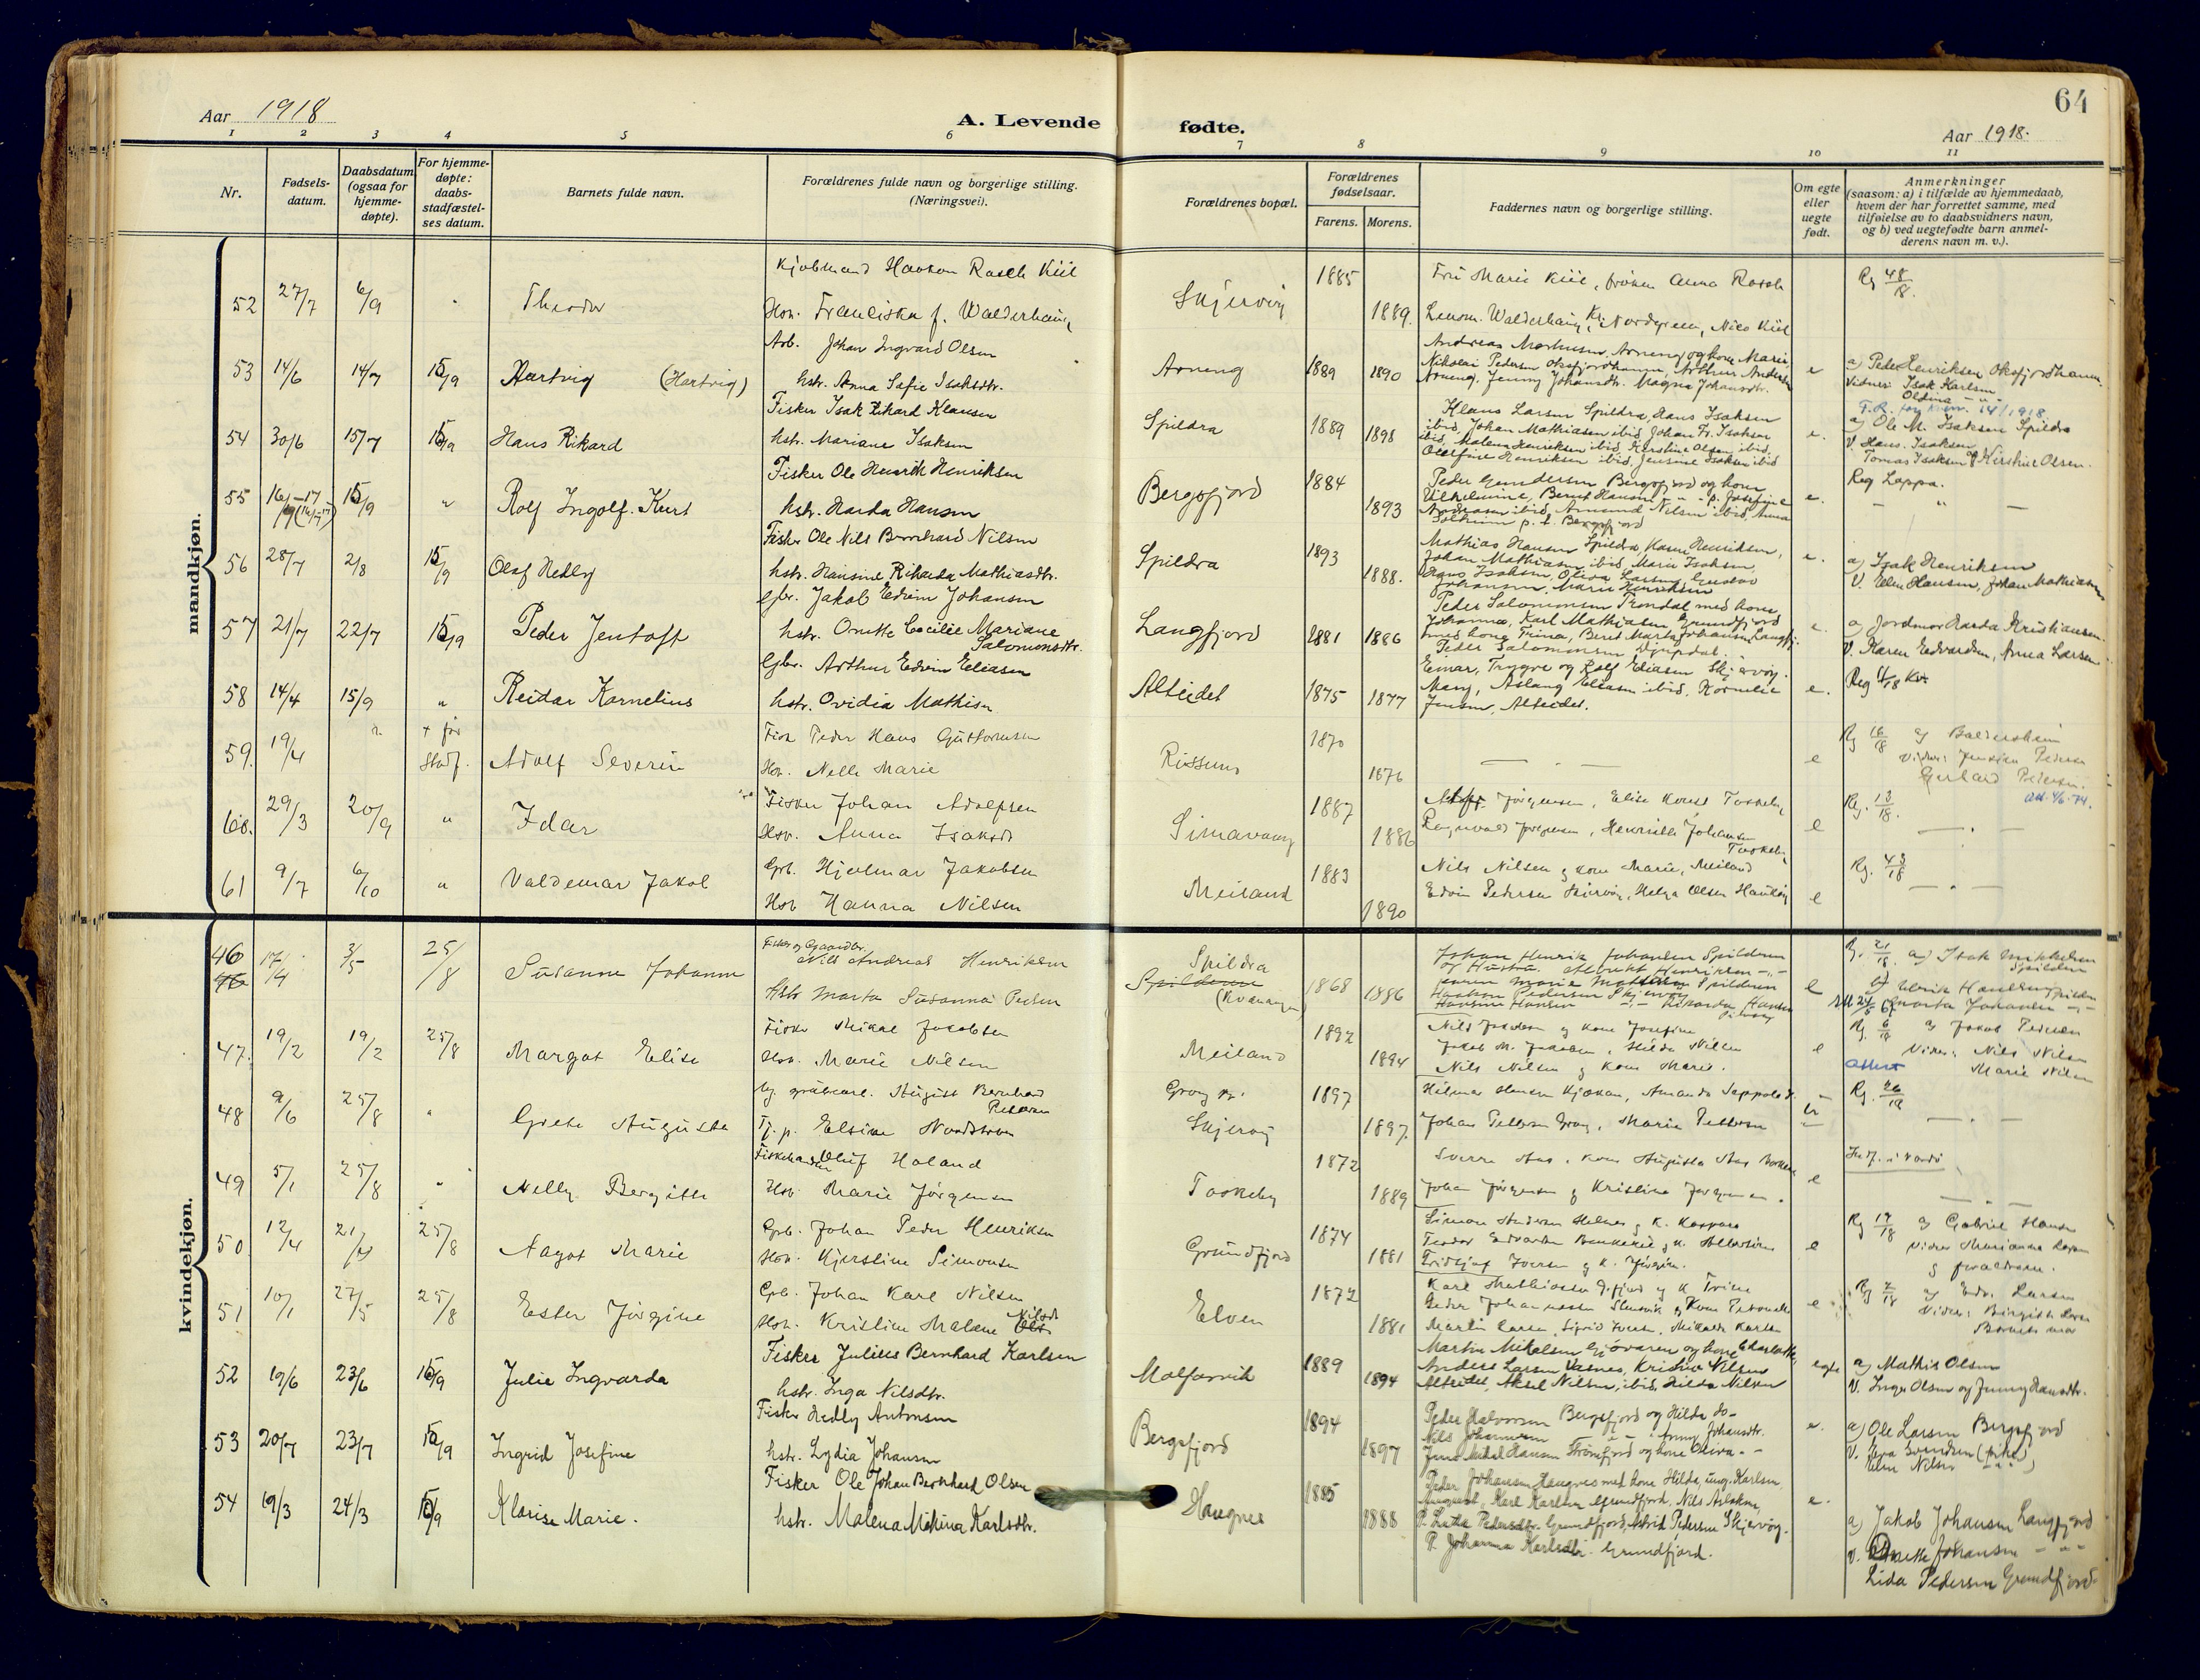 64
Aar 1918
A. Levende fødte.
Aar 1918.
1 2 3 4 5 6 7 8 9 10 11
Nr.
Fødsels-
datum.
Daabsdatum
(ogsaa for
hjemme-
døpte).
For hjemme-
døpte:
daabs-
stadfæstel-
ses datum.
Barnets fulde navn.
Forældrenes fulde navn og borgerlige stilling.
(Næringsvei).
Forældrenes bopæl.
Forældrenes
fødselsaar.
Farens. Morens.
Faddernes navn og borgerlige stilling.
Om egte
eller
uegte
født.
Anmerkninger
(saasom: a) i tilfælde av hjemmedaab,
hvem der har forrettet samme, med
tilføielse av to daabsvidners navn,
og b) ved uegtefødte barn anmel-
derens navn m. v.).
mandkjøn.
52 27/7 6/9 Theodor
Kjøbmand Haakon Rasch Kiil
Hon. Franciska f. Walderhaug
Skjervøy 1885 1889.
Fru Marie Kiil, frøken Anna Rasch
Lensm. Walderhaug, Kr. Nordgreen, Nico Kiil
Rg 48/18.
53 14/6 14/7 15/9 Hartvig (Hartvig)
Arb. Johan Ingvard Olsen
hstr. Anna Sofie Isaksdtr.
Arneng 1889 1890
Andreas Markusen, Arneng og kone Marie,
Nikolai Pedersen Oksfjordhamn, Arthur Andersen
Arneng, Jenny Johansdtr. Magna Johansdtr.
e
a) Peder Henriksen, Oksfjordhamn.
Vidner: Isak Karlsen
54 30/6 15/7 15/9 Hans Rikard
Fisker Isak Rikard Klausen
hstr. Mariane Isaksen
Spildra 1889 1898
Klaus Larsen Spildra, Hans Isaksen
ibid, Johan Mathiasen ibid, Johan Fr. Isaksen
ibid, Malena Henriksen ibid, Kerstine Olsen ibid,
Oleffine Henriksen ibid, Jensine Isaksen ibid
e.
a) Ole M. Isaksen Spildra
V. Hans Isaksen
Tomas Isaksen og Kirstine Olsen.
55 15/9 " Rolf Ingolf. Kurt
Fisker Ole Henrik Henriksen
hstr. Harda Hansen
Bergsfjord 1884 1893
Peder Gundersen Bergsfjord og kone
Vilhelmine, Bernt Hansen
Andreasen ibid, Amund Nilsen ibid, Anna
Solheim p. t. Bergsfjord
e.
Reg Loppa.
56 28/7 2/8 15/9 Olaf Hedly
Fisker Ole Nils Bernhard Nilsen
hstr. Hansine Rikarda Mathiasdtr.
Spildra 1893 1888.
Mathias Hansen Spildra, Karen Henriksen,
Johan Mathiasen ibid, Marie Isaksen,
Hans Isaksen, Oliva Larsen, Gustav
Johansen, Marie Henriksen
e.
a) Isak Henriksen
V. Elen Hansen, Johan Mathiasen
57 21/7 22/7 15/9 Peder Jentoft
Gbr. Jakob Edvin Johansen
hstr. Anette Cecilie Mariane
Salomonsdtr.
Langfjord 1881 1886
Peder Salomonsen Trondal med kone
Johanna, Karl Mathiasen Grundfjord
med kone Trina, Berit Marta Johansen Langfj.
Peder Salomonsen Djupdal.
e.
a) Jordmor Harda Kristiansen
V. Karen Edvardsen, Anna Larsen
58 14/4 15/9 " Reidar Kornelius
Gbr. Arthur Edvin Eliasen
hstr. Ovidia Mathisen
Alteidet 1875 1877
Einar, Trygve og Rolf Eliasen Skjervøy.
Mary, Aslaug Eliasen ibid, Kornelie
Jensen, Alteidet.
e.
59. 19/4 " + før
Stadf. Adolf Severin
Fisk Peder Hans Guttormsen
Hon. Nelle Marie
Rissund 1870 1876
e
Rg 16/18 a) Baldersheim
Vidner: Pedersen
Gerhard Pedersen.
60. 29/3 20/9 " Idar
Fisker Johan Adolfsen
Hon. Anna Isaksdt
Simavaag 1887 1886
Jørgensen, Elise Taskeby
Ragnvald Jørgensen, Henrikke Johansen
Taskeby
e
Rg. 13/18.
61 9/7 6/10 " Valdemar Jakob
Grb. Hjalmar Jakobsen
Hon Hanna Nilsen
Meiland 1883 1890
Nils Nilsen g kone Marie, Meiland
Edvin Pedersen Skjervøy, Helga Olsen Haukøy
e
Rg. 43/18
kvindekjøn.
46 17/4 3/5 25/8 Susanne Johanne
Fisker og Gaardbr.
Nils Andreas Henriksen
Hstr Marta Susanna Peders
Spildra
Spilderen
(Kvænangen) 1868 1886
Johan Henrik Johansen Spilderen
og Hustru. Albrekt Henriksen
Haakon Pedersen Skjervøy
Hansine Hansen
e
Rg. 21/18 a) Isak Mikkelsen
Spilderen
Marta Johansen
47. 19/2 19/2 25/8 Margot Elise
Fisker Mikal Jakobsen
Hon. Marie Nilsen
Meiland 1892 1894
Nils Jakobsen g kone Josefine
Jakob M. Jakobsen, Hilda Nilsen
Nils Nilsen g kone Marie.
e
Rg. 6/18 a) Jakob Pedersen
Vidner: Nils Nilsen
Marie Nilsen
48 9/6 25/8 " Grete Auguste
Ug. grubearb. August Bernhard
Pettersen
Tj. p. Elvine Nordstrøm
Skjervøy 1897 1897.
Hilmar Hansen Kjækan, Amanda Seppola
Johan Pettersen Grog, Marie Pettersen
Rg. 26/18
49 5/1 25/8 " Nelly Bergitte
Fiskehandler Oluf Holand
Hon. Marie Jørgensen
Taskeby 1872 1889
Sverre Aas, kone Augusta Aas
Johan Jørgensen g Kristine Jørgensen.
e
Indf. i Vardø
50 12/4 21/4 25/8 Aagot Marie
Grb. Johan Peder Henriksen
Hon. Kjerstine Simonsen
Grundfjord 1874 1881
Simon Andersen Helnes g K. Kaspara
Teodor Edvardsen
Fridtjof Iversen g K. Jørgine.
e
Rg 19/18 a) Gabriel Hansen
Vidner Marianna Larsen
g forældrene.
51 10/1 27/5 25/8 Ester Jørgine
Grb. Johan Karl Nilsen
Hon. Kristine Malene Nilsdt
Elven 1872 1881
Karl Mathiassen g K Trine
Peder Johannessen g Kone Petronelle
Martin Larsen, Sigrid Iversen, Mikalda Karlsen
e
Rg 2/18 a) Edv. Larsen
Vidner: Birgitte Larsen
Barnets mor
52 19/6 23/6 15/9 Julie Ingvarda
Fisker Julius Bernhard Karlsen
hstr. Inga Nilsdtr.
Malfarvik 1889 1894
Martin Mikalsen Gjøvaren og kone Charlotte,
Anders Larsen Vasnes, Kristine Nilsen
Alteidet, Aksel Nilsen, ibid, Hilda Nilsen
egte
a) Mathis Olsen
V. Inger Olsen og Jenny Hansdtr.
53 20/7 23/7 15/9 Ingrid Josefine
Fisker Hedly Antonsen
hstr. Lydia Johansen
Bergsfjord 1894 1897
Peder Halvorsen Bergsfjord og Hilda do-
Nils Johannesen Anny Johansdtr.
Jens Mikal Hansen Strømfjord og kone Oliva
e.
a) Ole Larsen Bergsfjord
V. Eva Svendsen (pike)
Elen Nilsen
54 19/3 24/3 15/9 Klarisa Marie.
Fisker Ole Johan Bernhard Olsen
hstr. Malena Mekina Karlsdtr.
Haugnes 1885 1888
Peder Johansen Haugnes med kone Hilda, ung. Karlsen,
ungkarl, Karl Karlsen Grundfjord, Nils Aslaksen,
P. Lætta Pedersdtr. Grundfjord, Astrid Pedersen Skjervøy.
P. Johanna Karlsdtr. Grundfjord.
e.
a) Jakob Johansen Langfjord
V. Anette Johansen
Lida Pedersen Grundfjord